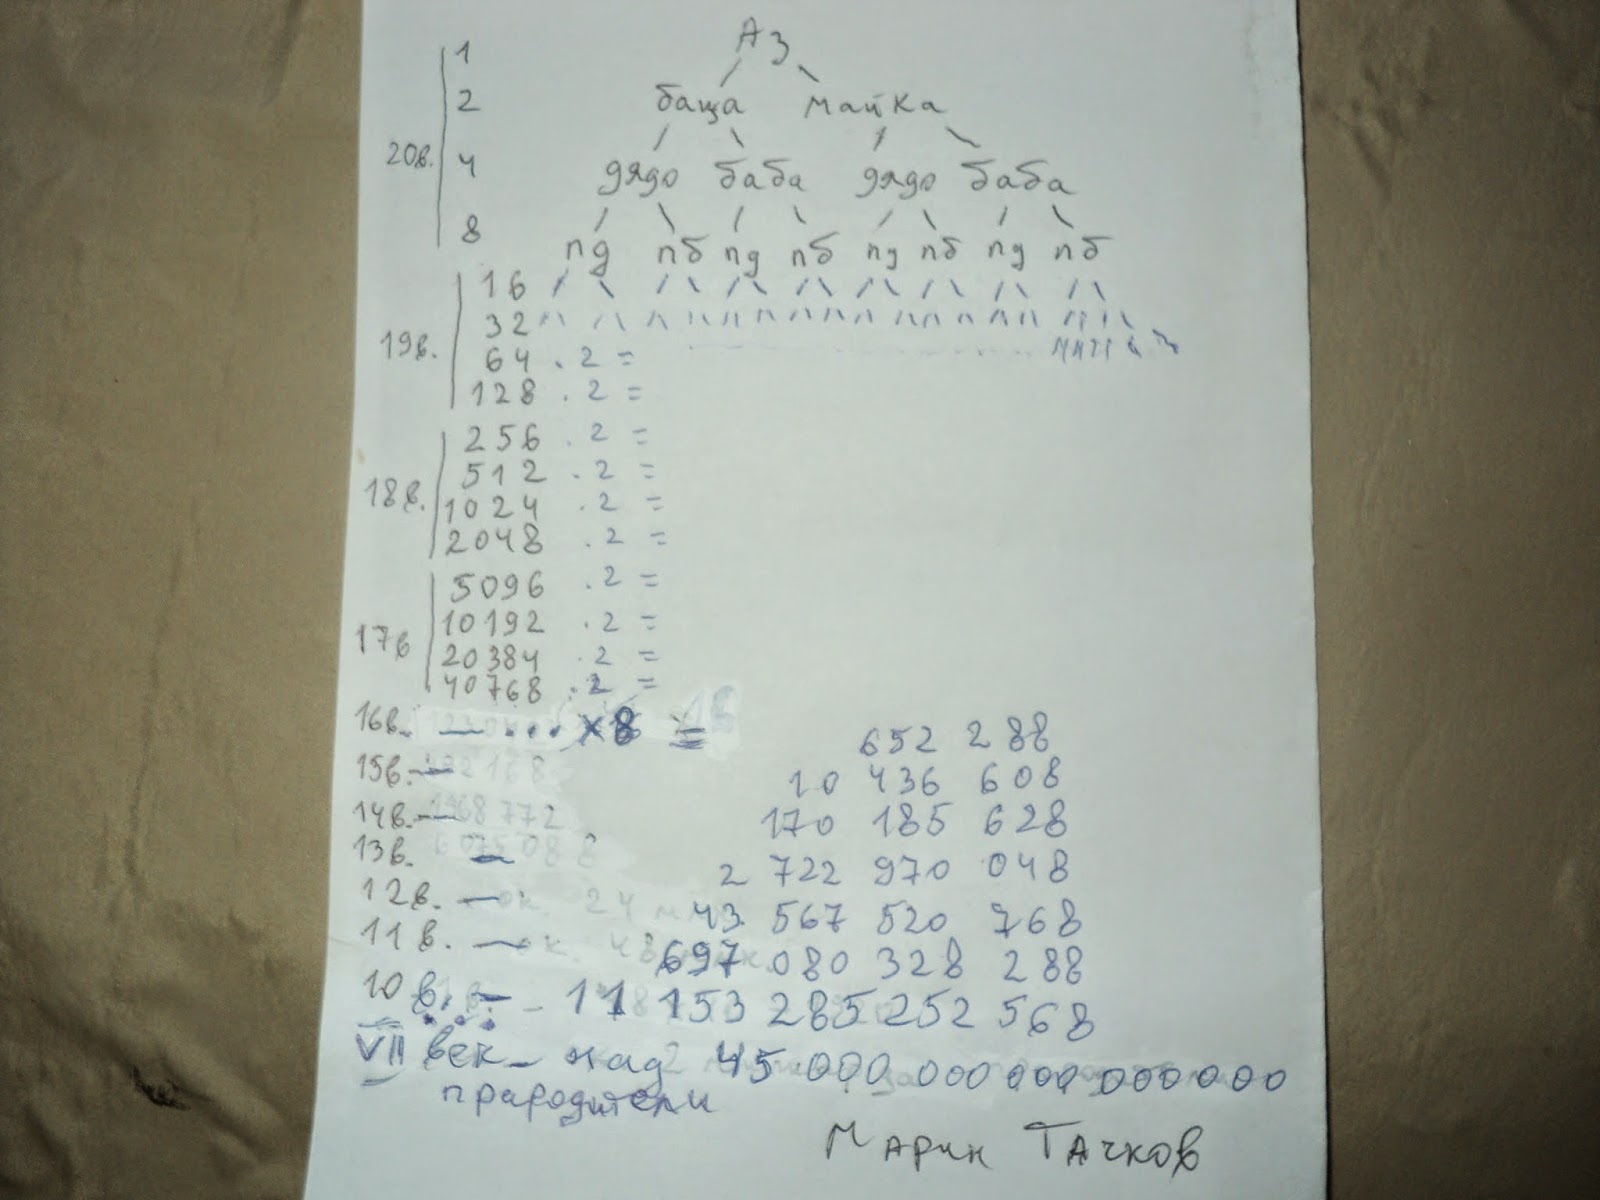 Аз
1
2 баща майка
20в. 4 дядо баба дядо баба
8 пд пб пд пб пд пб пд пб
16
32
19в. 64 . 2 =
128 . 2 =
256 . 2 =
512 . 2 =
18в. 1024 . 2 =
2048 . 2 =
5096 . 2 =
10192 . 2 =
17в 20384 . 2 =
40768 . 2 =
16в. — ... x8 = 652 288
15в. — 10 436 608
14в. — 170 185 628
13в. — 2 722 970 048
12в. — 43 567 520 768
11в. — 697 080 328 288
10 в. — 11 153 285 252 568
VII век – над 45 000 000 000 000 000
прародители
Марин Тачков